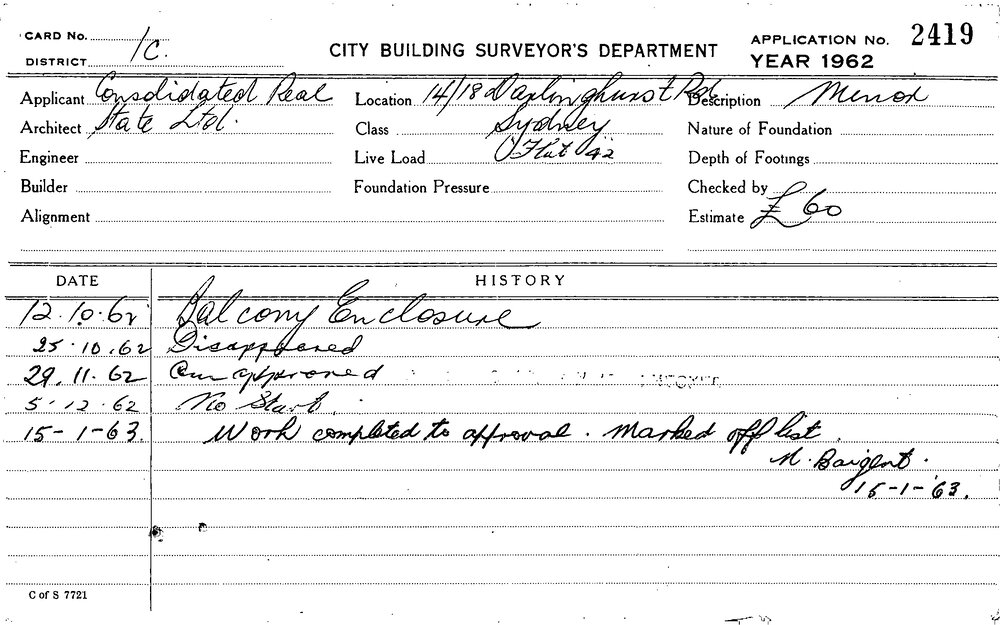 CARD No.
DISTRICT 1C.
CITY BUILDING SURVEYOR'S DEPARTMENT
APPLICATION No. 2419
YEAR 1962
Applicant Consolidated Real
Location 14/18 Darlinghurst Rd.
Description Minor
Architect State Ltd.
Class Sydney
Nature of Foundation
Engineer
Live Load Flat 42
Depth of Footings
Builder
Foundation Pressure
Checked by
Alignment
Estimate £ 60
DATE HISTORY
12.10.62 Balcony Enclosure
25.10.62 Disapproved
29.11.62 approved
5.12.62 No Start.
15-1-63. Work completed to approval. Marked off list.
M. Baigent.
15-1-63.
C of S 7721